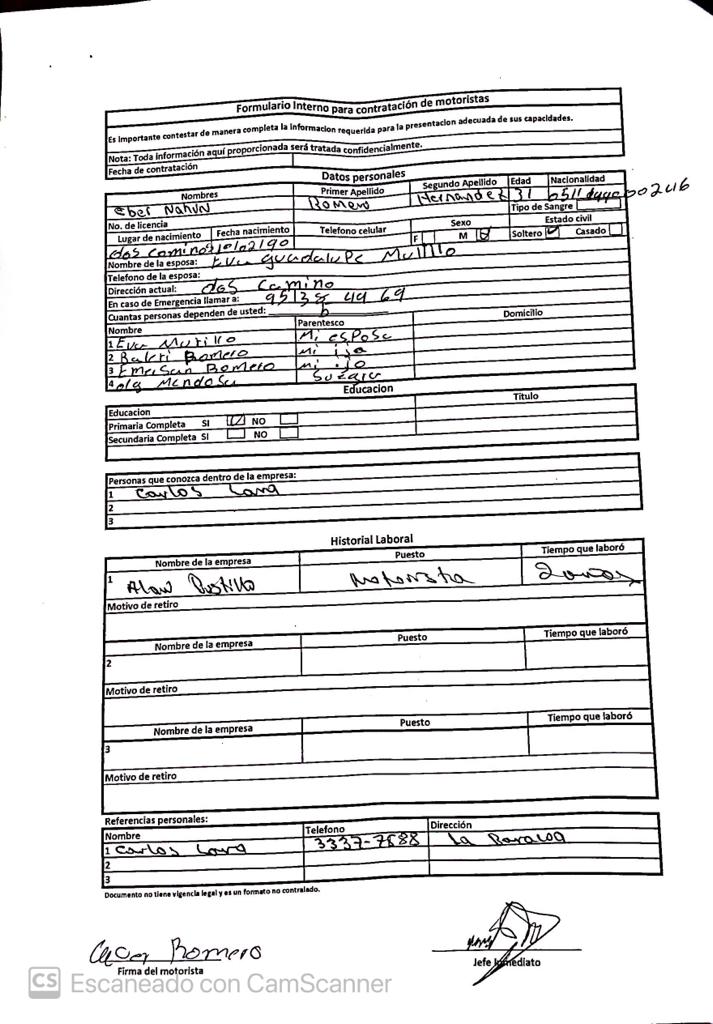 Formulario Interno para contratación de motoristas
Es importante contestar de manera completa la informacion requerida para la presentacion adecuada de sus capacidades.
Nota: Toda información aquí proporcionada será tratada confidencialmente.
Fecha de contratación
Datos personales
Nombres Primer Apellido Segundo Apellido Edad Nacionalidad
Eber Nahun Romero Hernandez 31
No. de licencia Tipo de Sangre
Lugar de nacimiento Fecha nacimiento Telefono celular Sexo Estado civil
dos Camino F M Soltero Casado
Nombre de la esposa: Eva guadalupe Murillo
Telefono de la esposa:
Dirección actual: dos Camino
En caso de Emergencia llamar a: 9538 49 69
Cuantas personas dependen de usted:
Nombre Parentesco Domicilio
1 Eva Murillo Mi esposa
2 Romero Mi ija
3 Emerson Romero Mi ijo
4 olg Mendosa Suegra
Educacion
Educacion Título
Primaria Completa SI NO
Secundaria Completa SI NO
Personas que conozca dentro de la empresa:
1 Carlos Lara
2
3
Historial Laboral
Nombre de la empresa Puesto Tiempo que laboró
1 Alan Motorista 2 años
Motivo de retiro
Nombre de la empresa Puesto Tiempo que laboró
2
Motivo de retiro
Nombre de la empresa Puesto Tiempo que laboró
3
Motivo de retiro
Referencias personales:
Nombre Telefono Dirección
1 Carlos Lara 3337-7888 La
2
3
Documento no tiene vigencia legal y es un formato no contralado.
Romero
Firma del motorista Jefe Inmediato
CS Escaneado con CamScanner